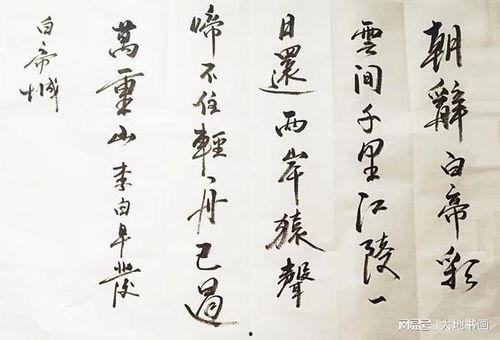 朝辭白帝彩
雲间千里江陵一
日還两岸猿聲
啼不住輕舟已過
萬重山李白早發
白帝城
网易号|大地书画